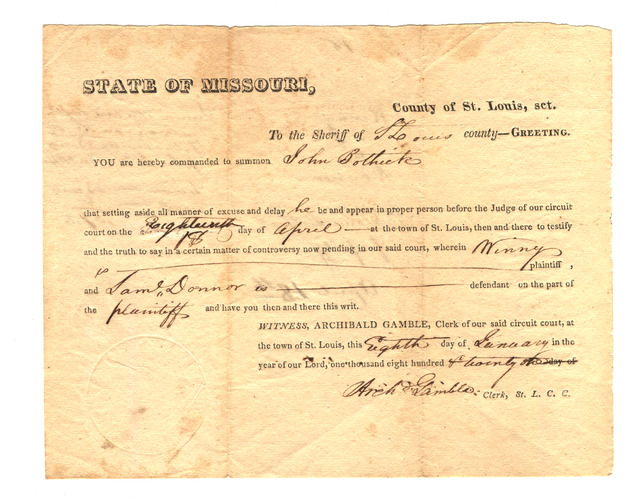 STATE OF MISSOURI,
County of St. Louis, sct.
To the Sheriff of St Louis county—GREETING.
YOU are hereby commanded to summon John
that setting aside all manner of excuse and delay he be and appear in proper person before the Judge of our circuit
court on the Eighteenth day of April at the town of St. Louis, then and there to testify
and the truth to say in a certain matter of controversy now pending in our said court, wherein Winny
is plaintiff,
and Saml. Donnor is defendant on the part of
the plaintiff and have you then and there this writ.
WITNESS, ARCHIBALD GAMBLE, Clerk of our said circuit court, at
the town of St. Louis, this Eighth day of January in the
year of our Lord, one thousand eight hundred & twenty day of
Archd Gamble Clerk, St. L. C. C.